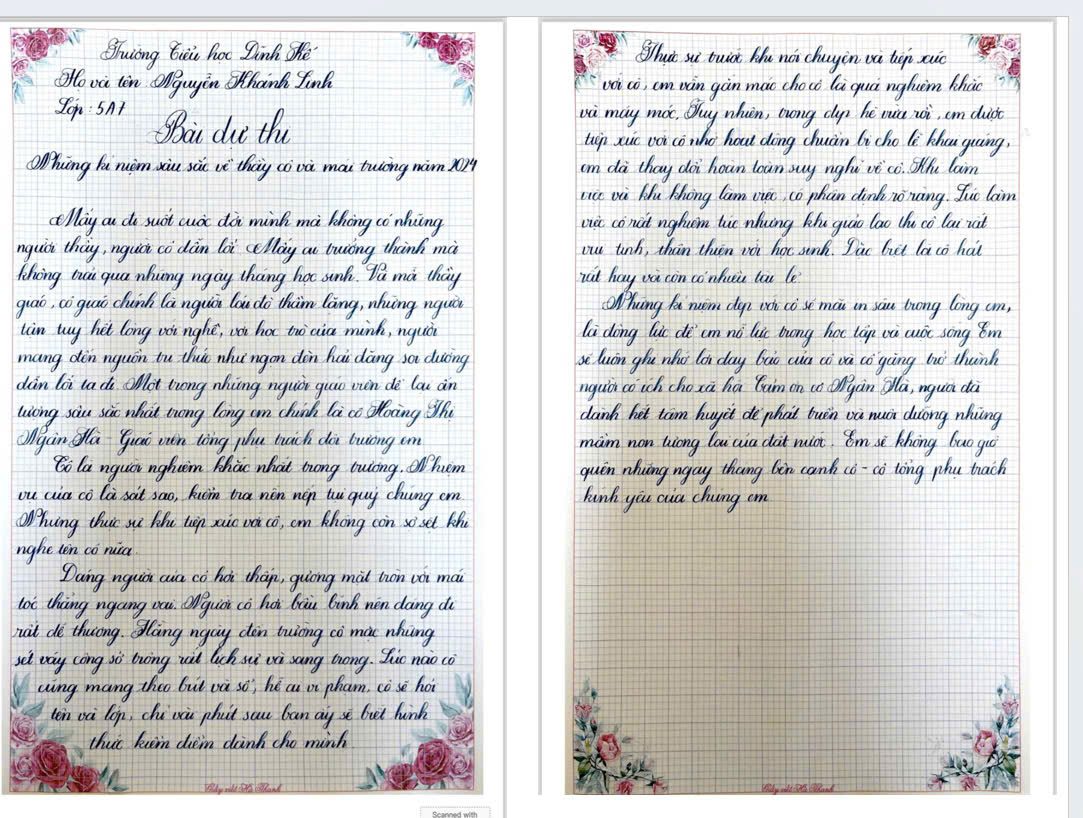 Trường Tiểu học Dĩnh Kế
Họ và tên: Nguyễn Khánh Linh
Lớp: 5A7
Bài dự thi
Những kỉ niệm sâu sắc về thầy cô và mái trường năm 2024
Mấy ai đi suốt cuộc đời mình mà không có những
người thầy, người cô dẫn lối. Mấy ai trưởng thành mà
không trải qua những ngày tháng học sinh. Và mỗi thầy
giáo, cô giáo chính là người lái đò thầm lặng, những người
tận tụy hết lòng với nghề, với học trò của mình, người
mang đến nguồn tri thức như ngọn đèn hải đăng soi đường
dẫn lối ta đi. Một trong những người giáo viên để lại ấn
tượng sâu sắc nhất trong lòng em chính là cô Hoàng Thị
Ngân Hà - Giáo viên tổng phụ trách đội trường em
Cô là người nghiêm khắc nhất trong trường. Nhiệm
vụ của cô là sát sao, kiểm tra nền nếp tụi quỷ chúng em.
Nhưng thực sự khi tiếp xúc với cô, em không còn sợ sệt khi
nghe tên cô nữa.
Dáng người của cô hơi thấp, gương mặt tròn với mái
tóc thẳng ngang vai. Người cô hơi bầu bĩnh nên dáng đi
rất dễ thương. Hằng ngày đến trường cô mặc những
sét váy công sở trông rất lịch sự và sang trọng. Lúc nào cô
cũng mang theo bút và sổ, hễ ai vi phạm, cô sẽ hỏi
tên và lớp, chỉ vài phút sau bạn ấy sẽ biết hình
thức kiểm điểm dành cho mình.
Giấy viết Hà Thanh
Scanned with
Thực sự trước khi nói chuyện và tiếp xúc
với cô, em vẫn gán mác cho cô là quá nghiêm khắc
và máy móc. Tuy nhiên, trong dịp hè vừa rồi, em được
tiếp xúc với cô nhờ hoạt động chuẩn bị cho lễ khai giảng,
em đã thay đổi hoàn toàn suy nghĩ về cô. Khi làm
việc và khi không làm việc, cô phân định rõ ràng. Lúc làm
việc cô rất nghiêm túc nhưng khi giao lao thì cô lại rất
vui tính, thân thiện với học sinh. Đặc biệt là cô hát
rất hay và còn có nhiều tài lẻ.
Những kỉ niệm đẹp với cô sẽ mãi in sâu trong lòng em,
là động lực để em nỗ lực trong học tập và cuộc sống. Em
sẽ luôn ghi nhớ lời dạy bảo của cô và cố gắng trở thành
người có ích cho xã hội. Cảm ơn cô Ngân Hà, người đã
dành hết tâm huyết để phát triển và nuôi dưỡng những
mầm non tương lai của đất nước. Em sẽ không bao giờ
quên những ngày tháng bên cạnh cô - cô tổng phụ trách
kính yêu của chúng em
Giấy viết Hà Thanh